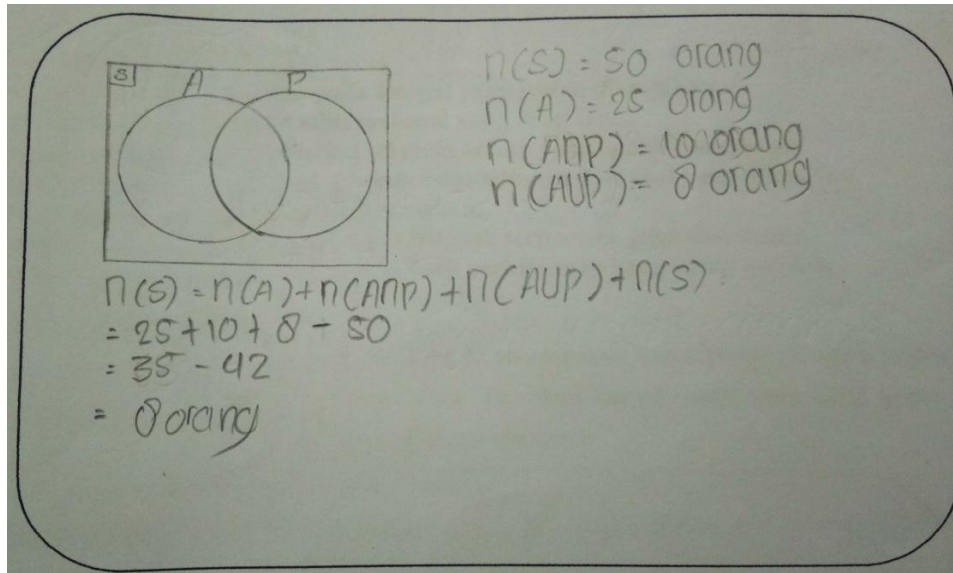 S A P
n(S) = 50 orang
n(A) = 25 orang
n(A∩P) = 10 orang
n(A∪P) = 8 orang
n(S) = n(A) + n(A∩P) + n(A∪P) + n(S)
= 25 + 10 + 8 - 50
= 35 - 42
= 8 orang